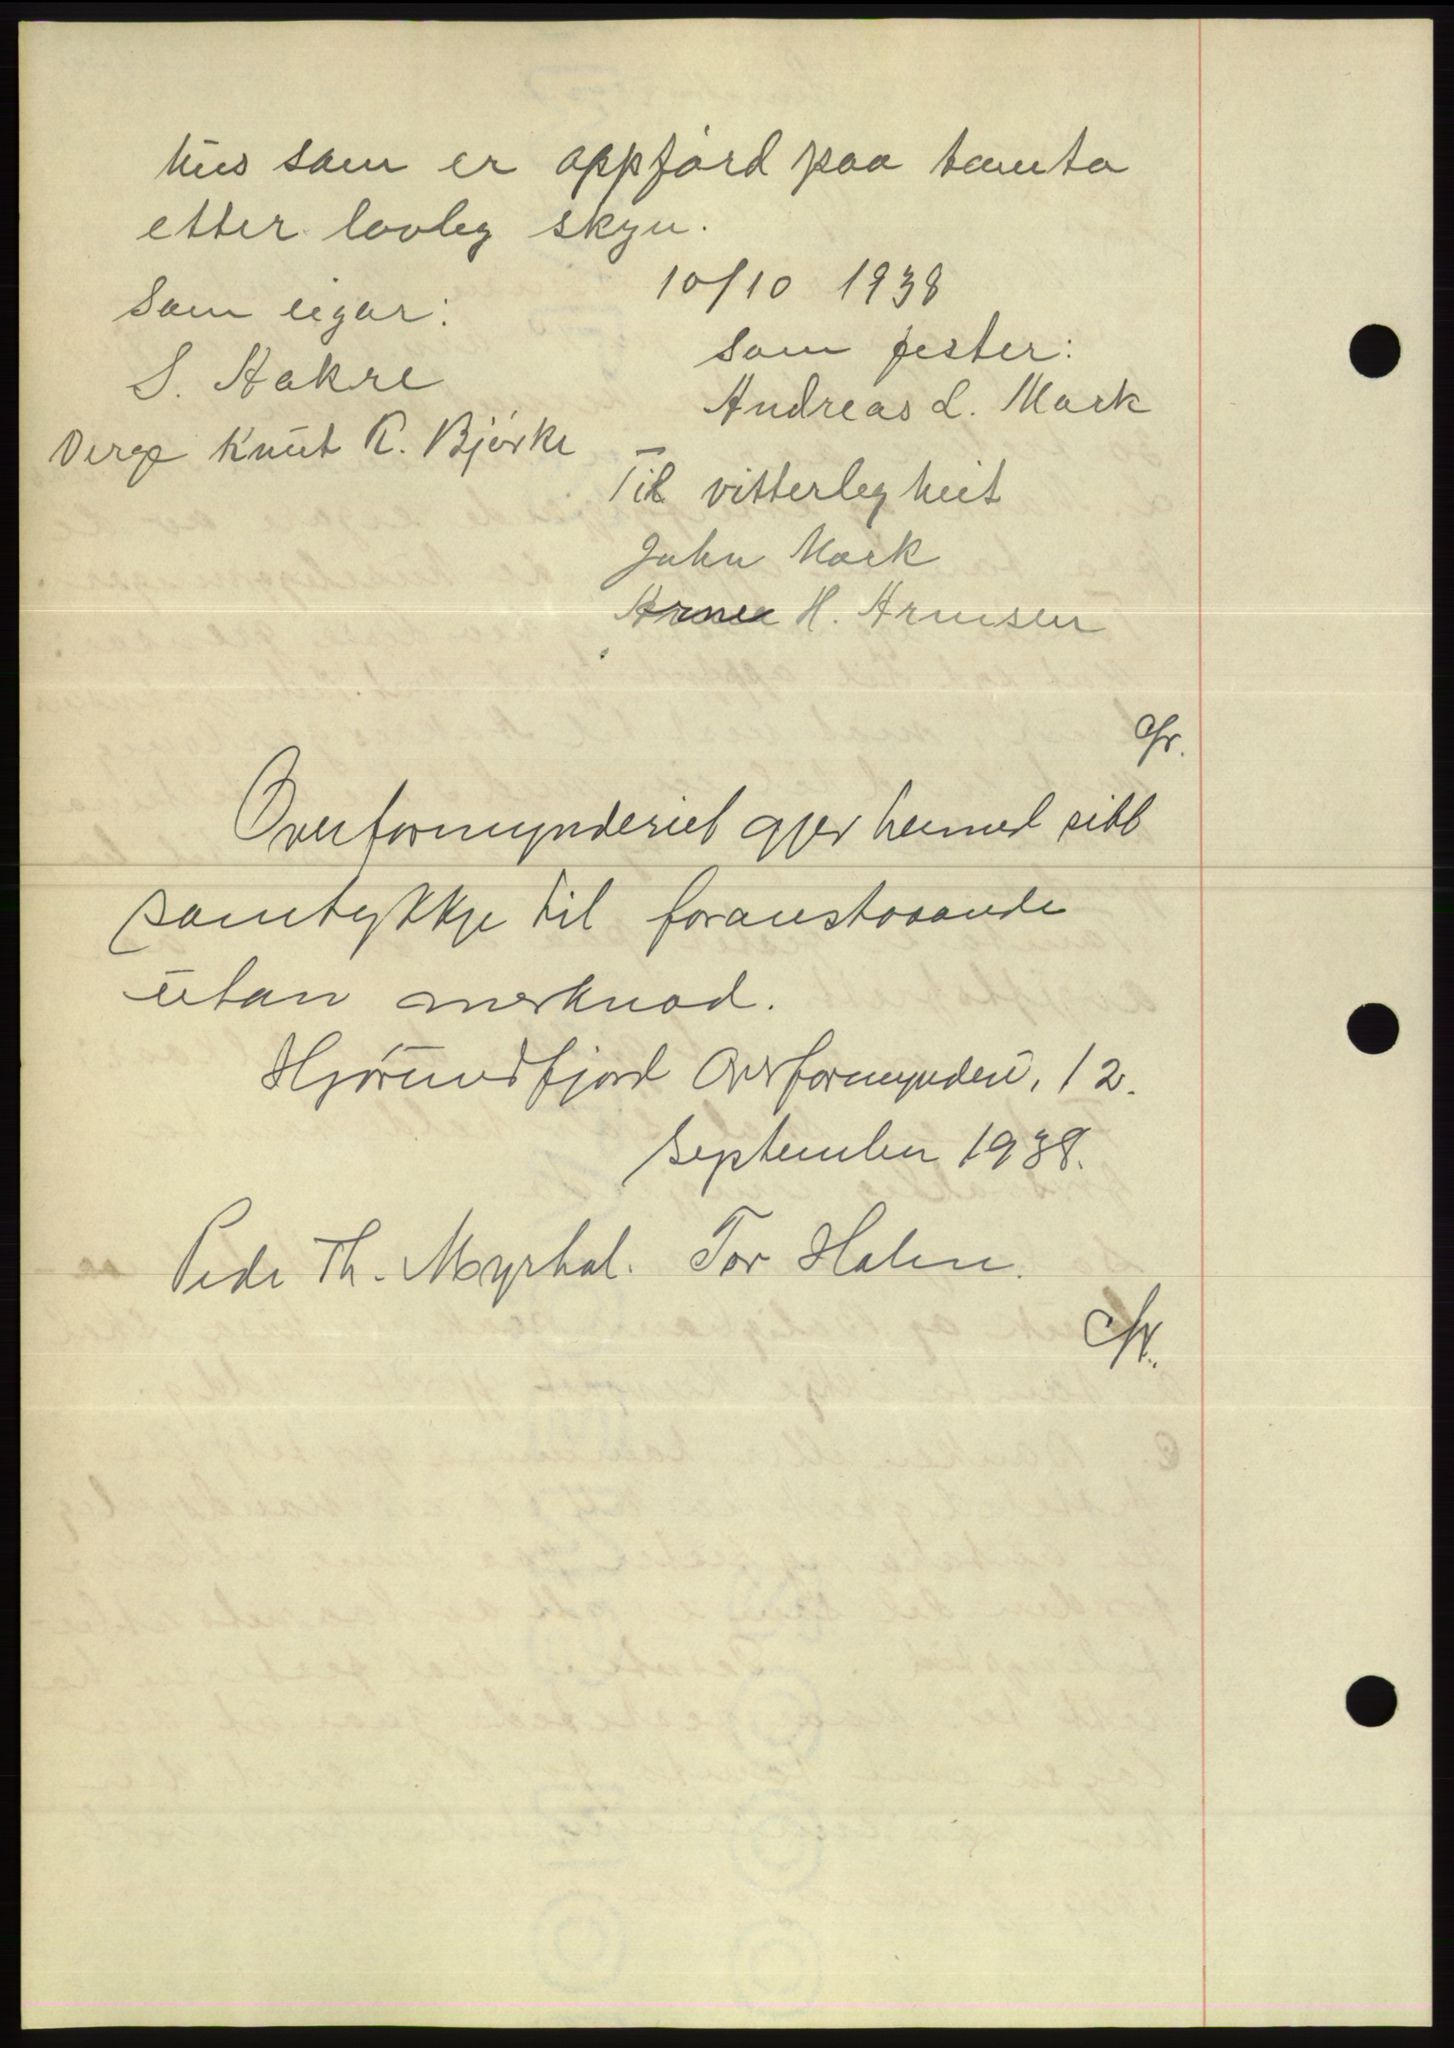 hus som er oppförd paa tomta
etter lovleg skyn.
10/10 1938
Som eigar:
S. Hakre
Verge Knut R. Bjørke
som fester:
Andreas L. Mork
Til vitterlegheit
John Mork
Arne H. Arnesen
Overformynderiet gjer hermed sitt
samtykkje til foranstaaande
utan merknad.
Hjörundfjord Overformynderi, 12.
september 1938.
Peder Th. Myrhol. Tor Holen.